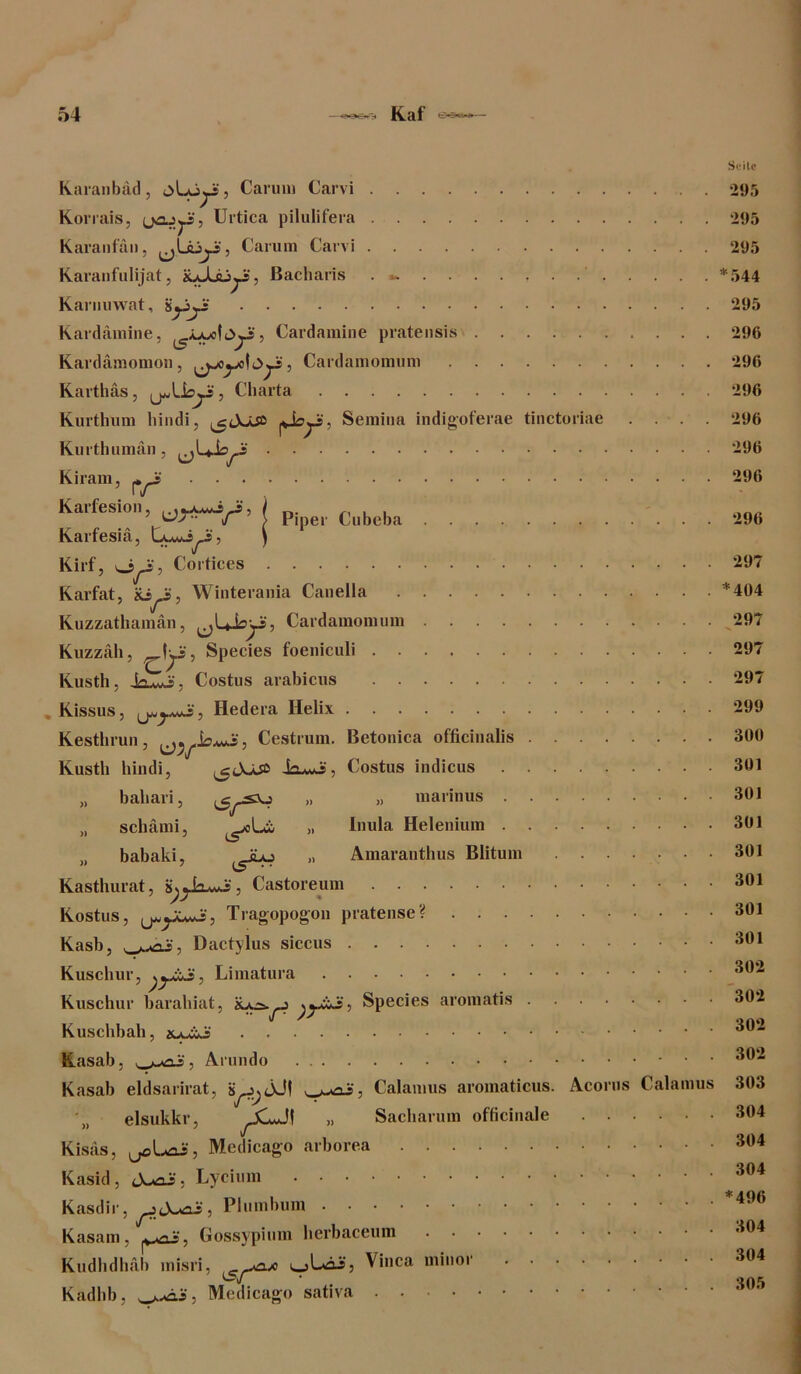 54 Kaf
Seite
Karanbâd, قرنباد, Carum Carvi . . . 295
Korrais, قريص, Urtica pilulifera . . . 295
Karanfân, قرنفان, Carum Carvi . . . 295
Karanfulijat, قرنفلية, Bacharis . . . *544
Karnuwat, قرنوة . . . 295
Kardâmine, قردامينى, Cardamine pratensis . . . 296
Kardâmomon, قردامومن, Cardamomum . . . 296
Karthâs, قرطاس, Charta . . . 296
Kurthum hindi, قرطم هندى, Semina indigoferae tinctoriae . . . 296
Kurthumân, قرطمان . . . 296
Kiram, قرم . . . 296
Karfesion, قرفسيون, } Piper Cubeba . . . 296
Karfesiâ, قرفسيا, }
Kirf, قرف, Cortices . . . 297
Karfat, قرفة, Winterania Canella . . . *404
Kuzzathamân, قرطمان, Cardamomum . . . 297
Kuzzâh, قزاح, Species foeniculi . . . 297
Kusth, قسط, Costus arabicus . . . 297
Kissus, قسوس, Hedera Helix . . . 299
Kesthrun, قسطرون, Cestrum. Betonica officinalis . . . 300
Kusth hindi, قسط هندى, Costus indicus . . . 301
„ bahari, بحرى „ „ marinus . . . 301
„ schâmi, شامى „ Inula Helenium . . . 301
„ babaki, ببقى „ Amaranthus Blitum . . . 301
Kasthurat, قسطورة, Castoreum . . . 301
Kostus, قستوس, Tragopogon pratense? . . . 301
Kasb, قسب, Dactylus siccus . . . 301
Kuschur, قشور, Limatura . . . 302
Kuschur barahiat, قشور برحية, Species aromatis . . . 302
Kuschbah, قشبة . . . 302
Kasab, قصب, Arundo . . . 302
Kasab eldsarirat, قصب الذريرة, Calamus aromaticus. Acorus Calamus 303
„ elsukkr, السكر „ Sacharum officinale . . . 304
Kisâs, قصاص, Medicago arborea . . . 304
Kasid, قصد, Lycium . . . 304
Kasdir, قصدير, Plumbum . . . *496
Kasam, قصم, Gossypium herbaceum . . . 304
Kudhdhâb misri, قضاب مصرى, Vinca minor . . . 304
Kadhb, قضب, Medicago sativa . . . 305